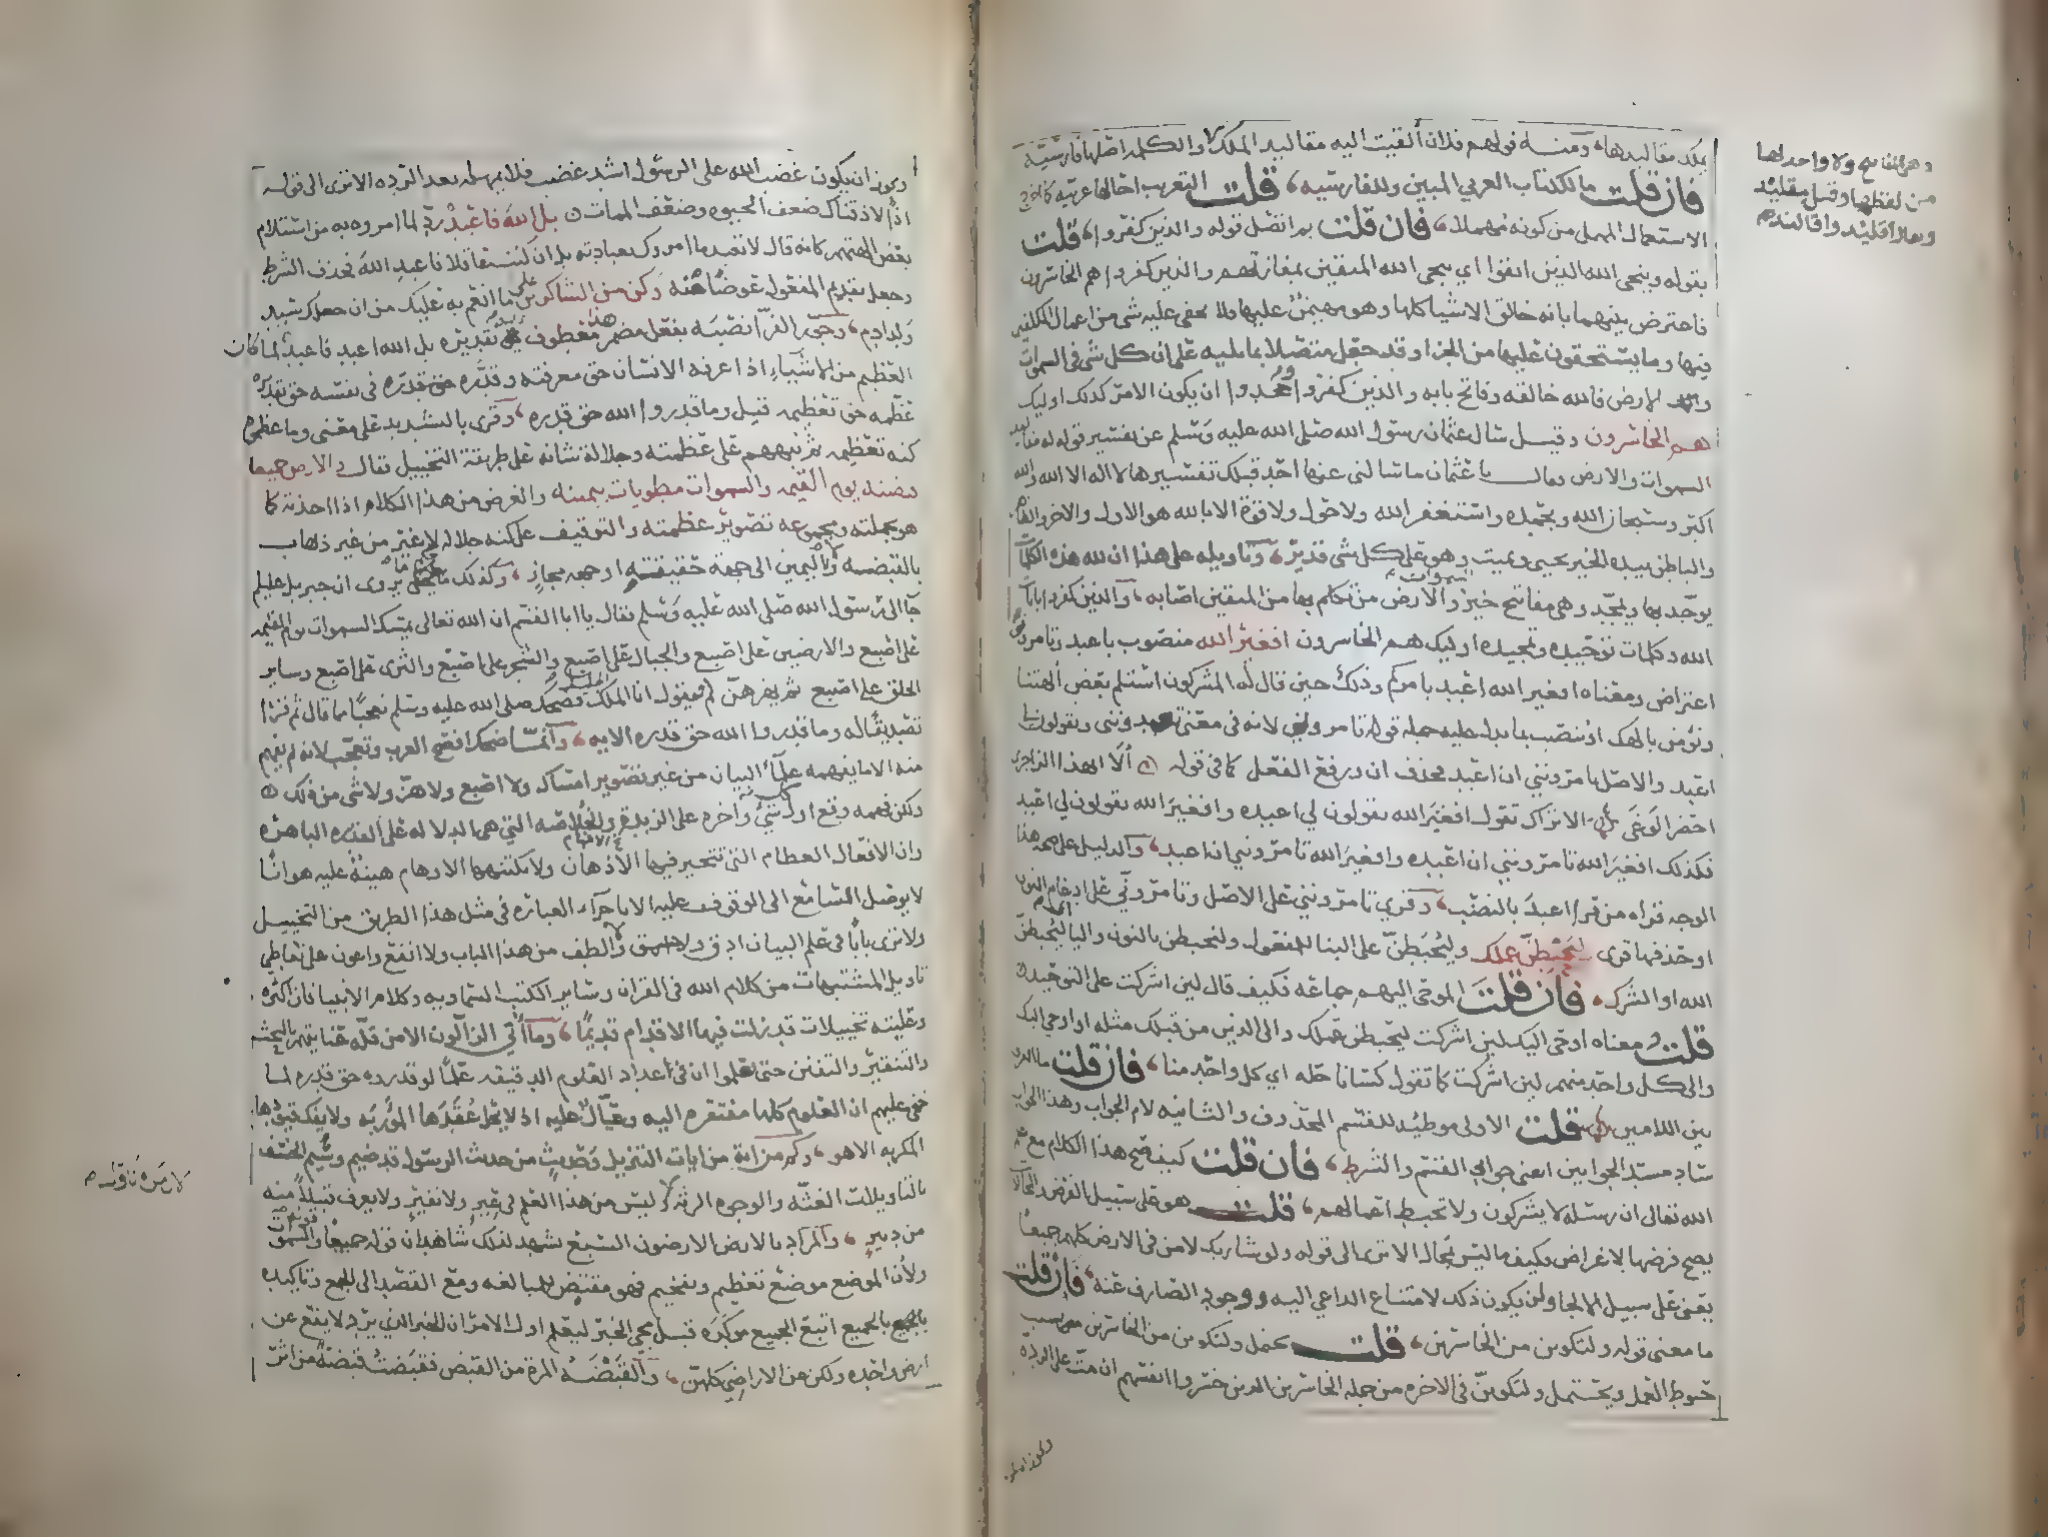 يملك مقاليدها ومنه قولهم فلان ألقيت اليه مقاليد الملك والكلمه اصلها فارسيه
فان قلت ما للكتاب العربي المبين وللفارسيه قلت التعريب احالها عربيه كما اخرج
الاستعمال المهمل من كونه مهملا فان قلت بم اتصل قوله والذين كفروا قلت
بقوله وينجى الله الذين اتقوا اي ينجى الله المتقين بمفازتهم والذين كفروا هم الخاسرون
فاعترض بينهما بانه خالق الاشيا كلها وهو مهيمن عليها فلا يخفى عليه شى من اعمال المكلفين
فيها وما يستحقون عليها من الجزا وقد جعل متصلا بما يليه على ان كل شى فى السموات
والارض فالله خالقه وفاتح بابه والذين كفروا وجحدوا ان يكون الامر كذلك اوليك
هم الخاسرون وقيل سال عثمان رسول الله صلى الله عليه وسلم عن تفسير قوله له مقاليد
السموات والارض فقال يا عثمان ما سالنى عنها احد قبلك تفسيرها لا اله الا الله والله
اكبر وسبحان الله وبحمده واستغفر الله ولا حول ولا قوة الا بالله هو الاول والاخر والظاهر
والباطن بيده الخير يحيى ويميت وهو على كل شى قدير وتاويله على هذا ان لله هذه الكلمات
يوحد بها ويمجد وهى مفاتيح خير السموات والارض من تكلم بها من المتقين اصابه والذين كفروا بايات
الله وكلمات توحيده وتمجيده اوليك هم الخاسرون افغير الله منصوب باعبد وتامرونى
اعتراض ومعناه افغير الله اعبد بامركم وذلك حين قال له المشركون استلم بعض آلهتنا
ونؤمن بالهك او ينصب بما يدل عليه جمله قوله تامرونى اعبد لانه فى معنى تعبدوننى وتقولون لى
اعبد والاصل تامروننى ان اعبد فحذف ان ورفع الفعل كما فى قوله ألا ايهذا الزاجرى
احضر الوغى الا تراك تقول افغير الله تقولون لي اعبده وافغير الله تقولون لي اعبد
فكذلك افغير الله تامروننى ان اعبده وافغير الله تامروننى ان اعبد والدليل على صحه هذا
الوجه قراه من قرا اعبد بالنصب وقري تامروننى على الاصل وتامرونى على ادغام النون
او حذفها قرى ليحبطن عملك وليحبطن على البنا للمفعول ولنحبطن بالنون واليا اي ليحبطن
الله او الشرك فان قلت الموحى اليهم جماعه فكيف قال لين اشركت على التوحيد
قلت معناه اوحى اليك لين اشركت ليحبطن عملك والى الذين من قبلك مثله او اوحى اليك
والى كل واحد منهم لين اشركت كما تقول كسانا حله اي كل واحد منا فان قلت ما الفرق
بين اللامين قلت الاولى موطئه للقسم المحذوف والثانيه لام الجواب وهذا الجواب
ساد مسد الجوابين اعنى جوابي القسم والشرط فان قلت كيف صح هذا الكلام مع علم
الله تعالى ان رسله لا يشركون ولا تحبط اعمالهم قلت هو على سبيل الفرض والمحالات
يصح فرضها لاغراض فكيف ما ليس بمحال الا ترى الى قوله ولو شا ربك لامن من فى الارض كلهم جميعا
يعنى على سبيل الالجا ولن يكون ذلك لامتناع الداعي اليه ووجود الصارف عنه فان قلت
ما معنى قوله ولتكونن من الخاسرين قلت يحتمل ولتكونن من الخاسرين بسبب
حبوط العمل ويحتمل ولتكونن فى الاخره من جمله الخاسرين الذين خسروا انفسهم ان مت على الرده
وهى المفاتيح ولا واحد لها
من لفظها وقيل مقليد
ويقال اقليد واقاليد
ويجوز ان يكون غضب الله على الرسول اشد غضب فلا يمهله بعد الرده الا ترى الى قوله
اذا لاذقناك ضعف الحيوه وضعف الممات بل الله فاعبد رد لما امروه به من استلام
بعض الهتهم كانه قال لا تعبد ما امروك بعبادته بل ان كنت عاقلا فاعبد الله فحذف الشرط
وجعل تقديم المفعول عوضا منه وكن من الشاكرين على ما انعم به عليك من ان جعلك سيد
ولد ادم وجوز الفرا نصبه بفعل مضمر هذا معطوف عليه تقديره بل الله اعبد فاعبد لما كان
العظيم من الاشياء اذا عرفه الانسان حق معرفته وقدره حق قدره فى نفسه حق تقديره
عظمه حق تعظيمه قيل وما قدروا الله حق قدره وقرى بالتشديد على معنى وما عظموه
كنه تعظيمه ثم نبههم على عظمته وجلالة شانه على طريقة التخييل فقال والارض جميعا
قبضته يوم القيمه والسموات مطويات بيمينه والغرض من هذا الكلام اذا اخذته كما
هو بجملته ومجموعه تصوير عظمته والتوقيف على كنه جلاله لا غير من غير ذهاب
بالقبضه ولا باليمين الى جهة حقيقة او جهه مجاز وكذلك حكم ما يروى ان جبريل عليه السلم
جا الى رسول الله صلى الله عليه وسلم فقال يا ابا القسم ان الله تعالى يمسك السموات يوم القيمه
على اصبع والارضين على اصبع والجبال على اصبع والشجر على اصبع والثرى على اصبع وساير
الخلق على اصبع ثم يهزهن ثم يقول انا الملك فضحك صلى الله عليه وسلم تعجبا مما قال ثم قرا
تصديقا له وما قدروا الله حق قدره الايه وانما ضحك افصح العرب وتعجب لانه لم يفهم
منه الا ما يفهمه علماء البيان من غير تصوير امساك ولا اصبع ولا هز ولا شى من ذلك
ولكن فهمه وقع اول شيء وآخره على الزبدة والخلاصه التي هى الدلاله على القدره الباهره
وان الافعال العظام التى تتحير فيها الاذهان ولا تكتنهها الاوهام هينة عليه هوانا
لا يوصل السامع الى الوقوف عليه الا باجراء العباره فى مثل هذا الطريق من التخييل
ولا ترى بابا فى علم البيان ادق ولا ارق ولا الطف من هذا الباب ولا انفع واعون على تعاطى
تاويل المشتبهات من كلام الله فى القران وساير الكتب السماويه وكلام الانبيا فان اكثره
وعليته تخييلات قد زلت فيها الاقدام قديما وما أتي الزالون الا من قله عنايتهم بالبحث
والتنقير والتفنن حتى يعلموا ان فى اعداد العلوم الدقيقه علما لو قدروه حق قدره لما
خفى عليهم ان العلوم كلها مفتقره اليه وعيال عليه اذ لا يحل عقدها المؤربه ولا يفك قيودها
المكربه الا هو وكم من اية من ايات التنزيل وحديث من حديث الرسول قد ضيم وسيم الخسف
بالتاويلات الغثه والوجوه الرثه لان من تاول ليس من هذا العلم فى عير ولا نفير ولا يعرف قبيلا منه
من دبير والمراد بالارض الارضون السبع يشهد لذلك شاهدان قوله جميعا وقوله والسموات
ولان الموضع موضع تعظيم وتفخيم فهو مقتض للمبالغه ومع القصد الى الجمع وتاكيده
بالجميع اتبع الجميع موكده قبل مجي الخبر ليعلم اول الامر ان الخبر الذي يرد لا يقع عن
ارض واحده ولكن عن الاراضي كلهن والقبضه المرة من القبض فقبضت قبضة من اثر